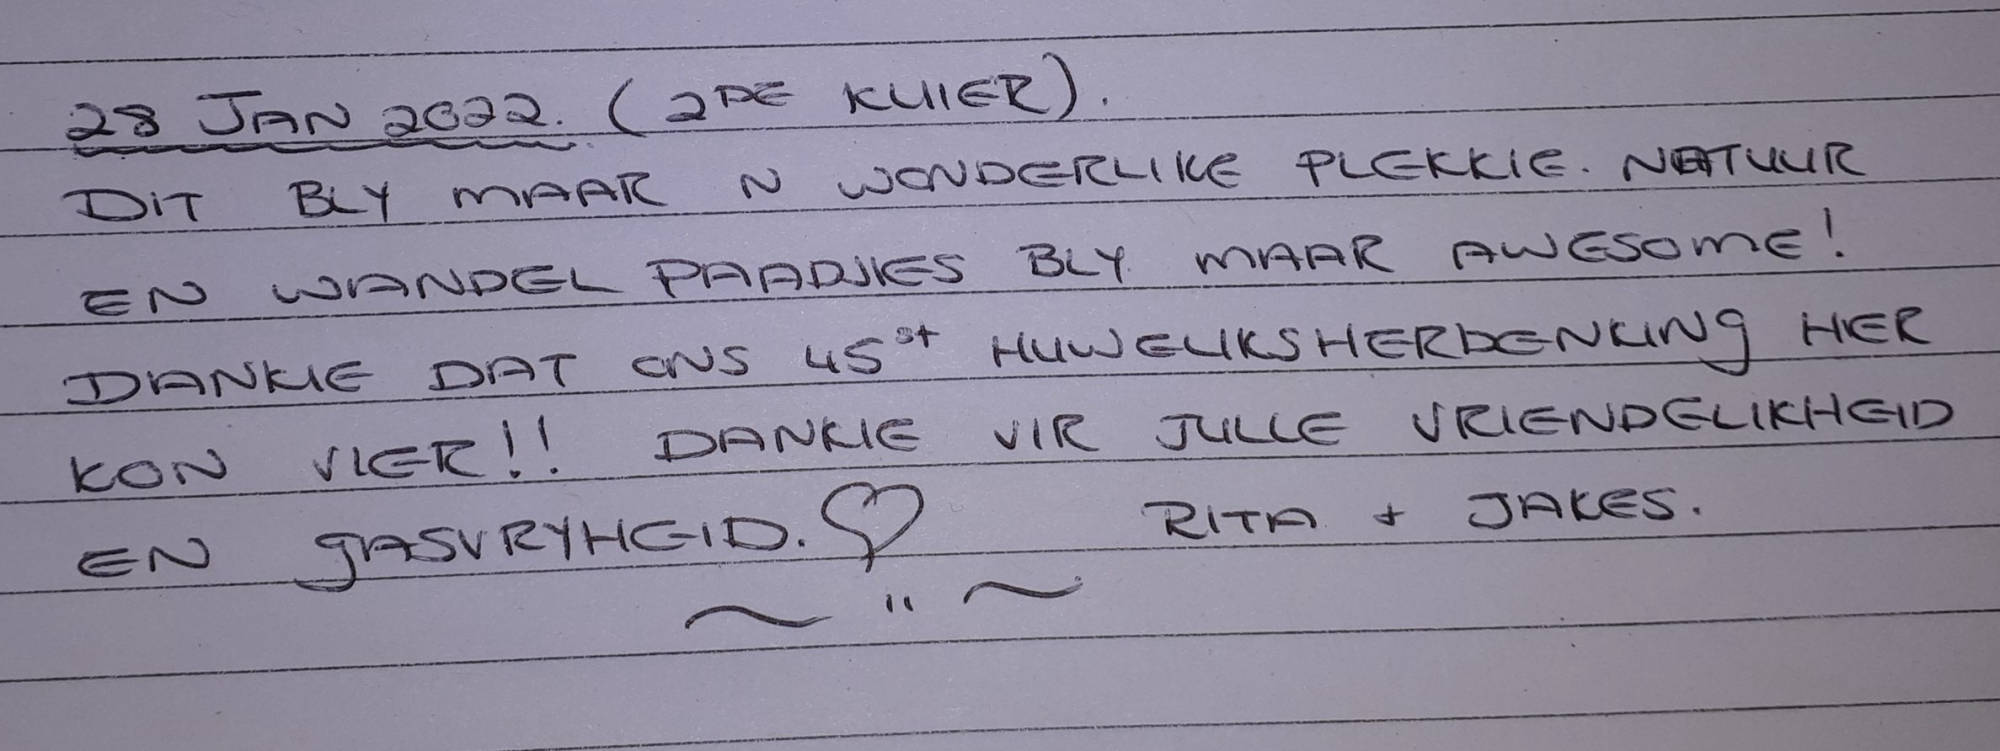 28 JAN 2022. (2DE KUIER).
DIT BLY MAAR N WONDERLIKE PLEKKIE. NATUUR
EN WANDEL PAADJIES BLY MAAR AWESOME!
DANKIE DAT ONS 45st HUWELIKSHERDENKING HER
KON VIER!! DANKIE VIR JULLE VRIENDELIKHEID
EN GASVRYHEID. ♡ RITA + JAKES.
~ " ~